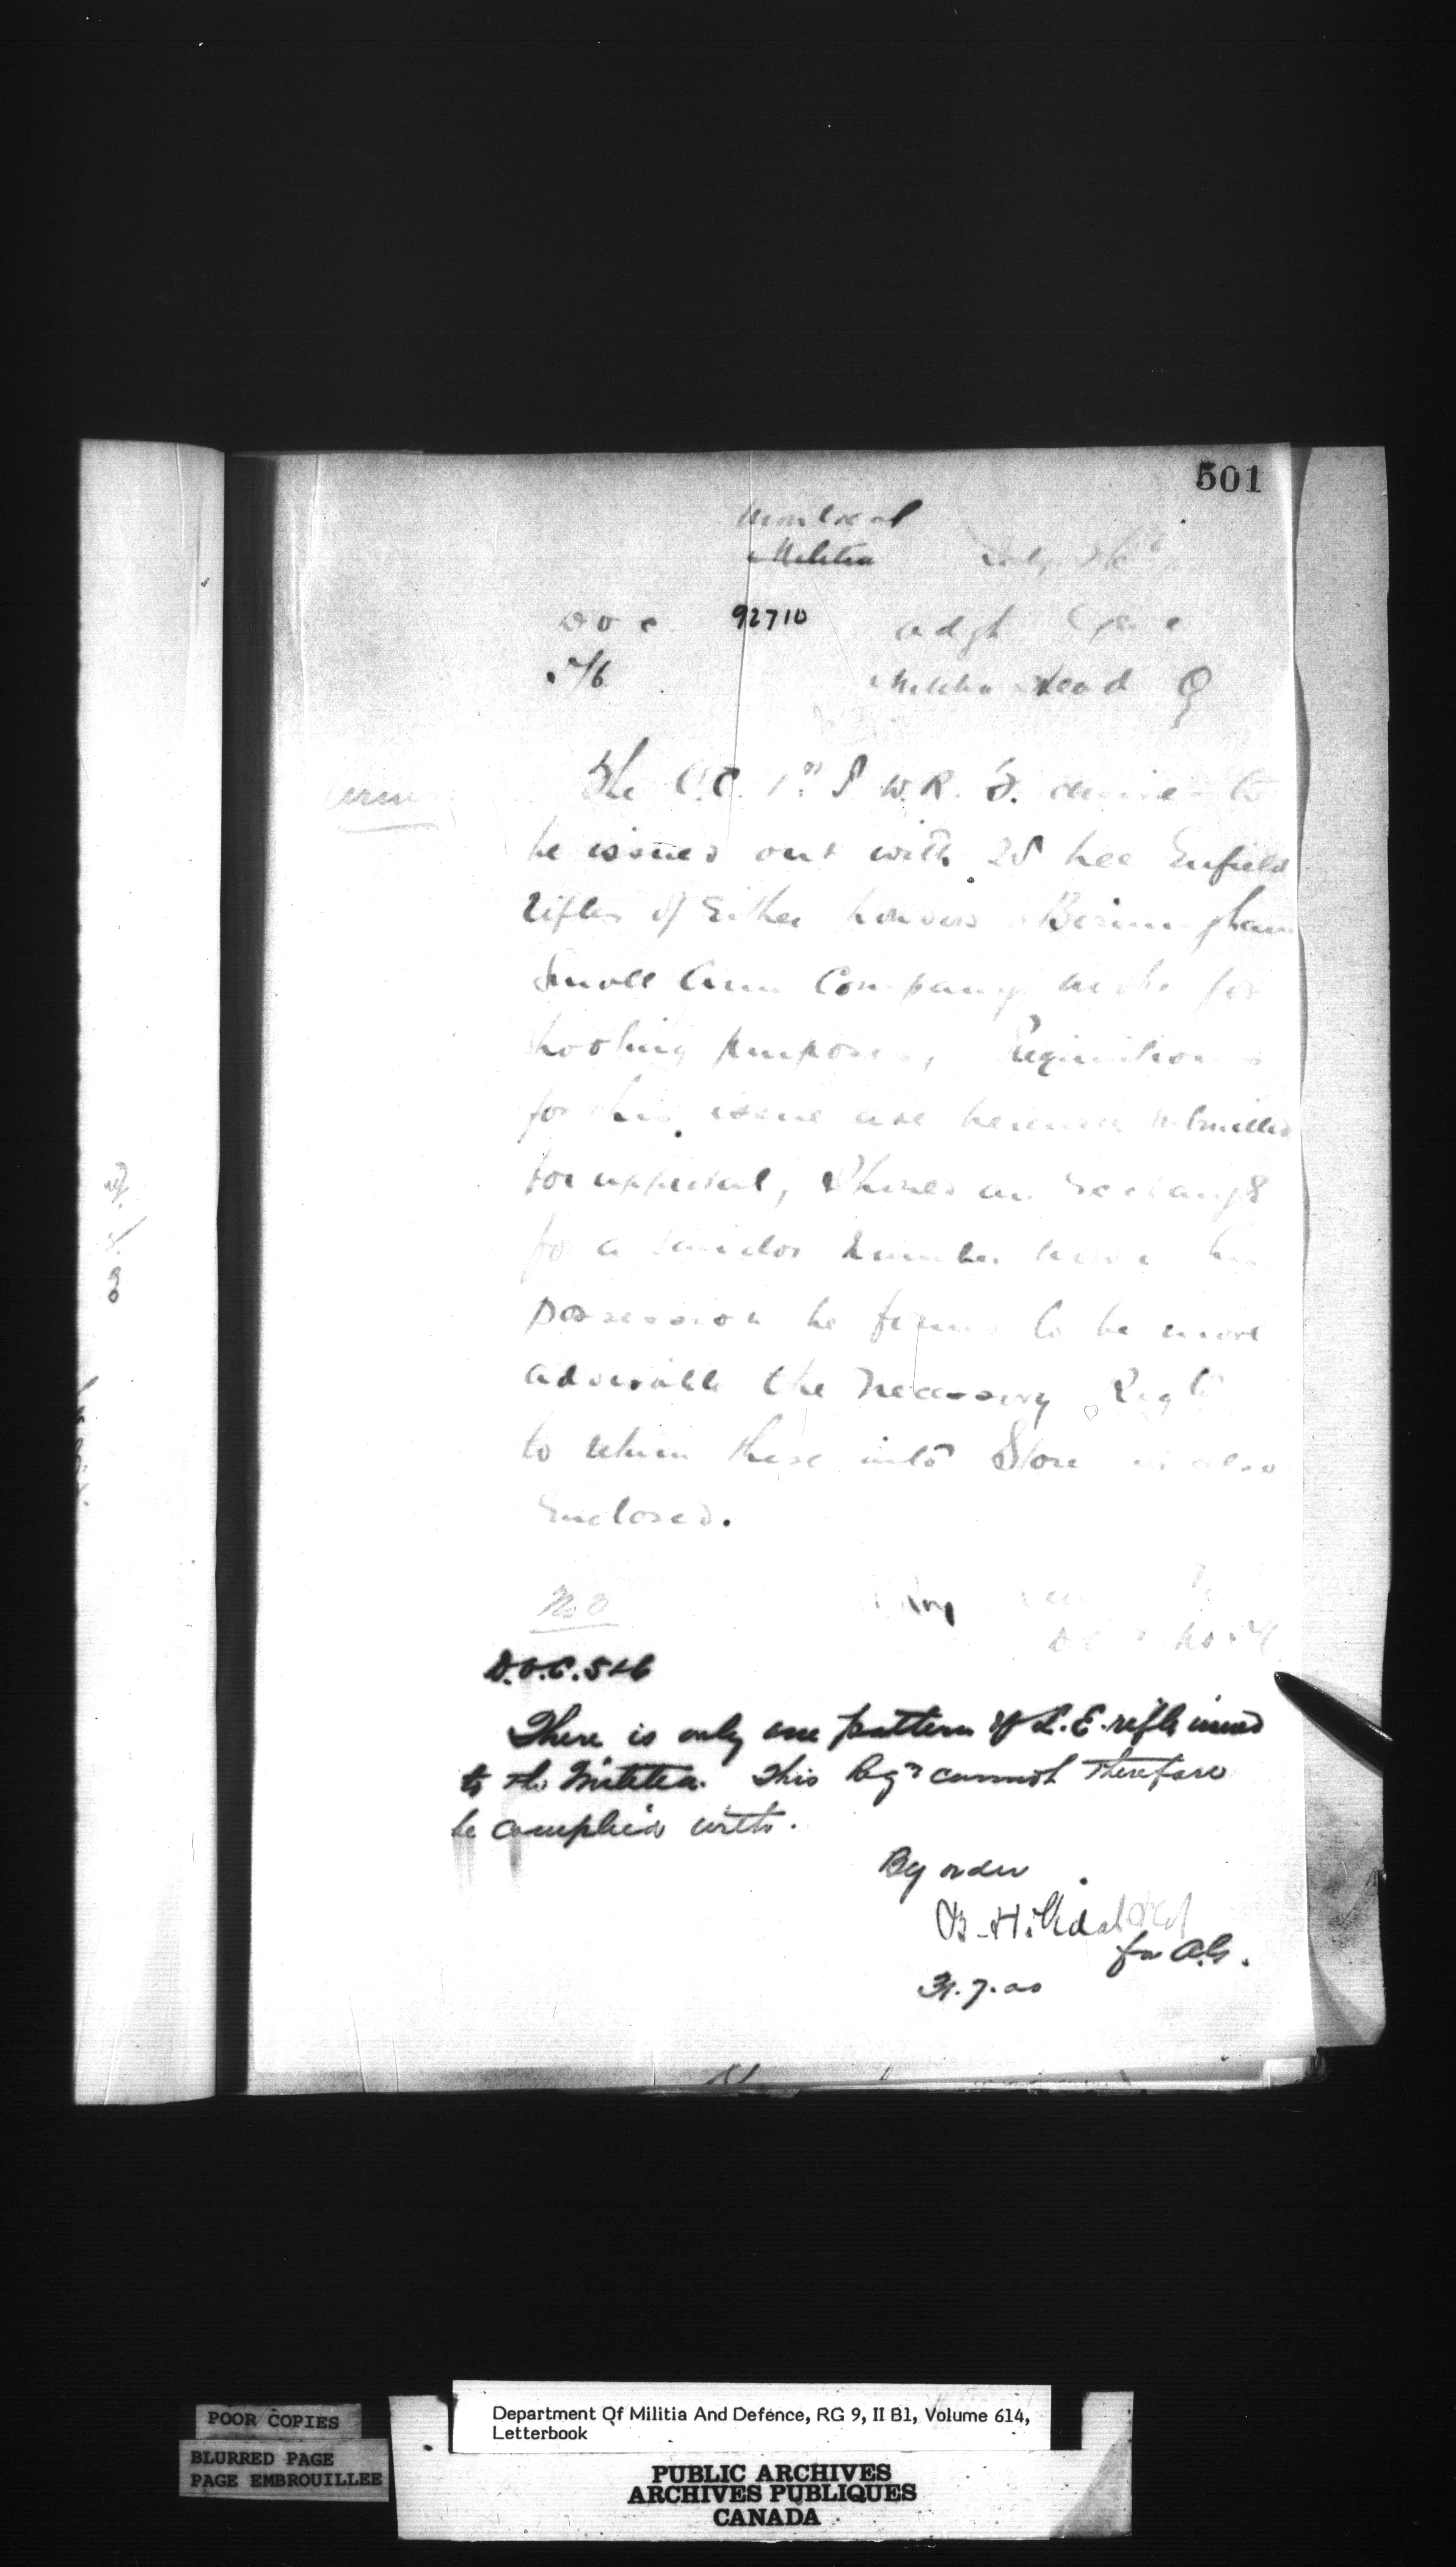 501
Montreal
Militia July
D O C 92710 Adjt
5/6 Militia Head Q
Arms
The O.C. 1st P W. R. F. desires to
be issued out with 25 Lee Enfield
rifles of Either London Birmingham
Small Arm Company make for
shooting purposes, Requisitions
for this issue are herewith submitted
for approval, Should an Exchange
for a similar number now in his
possession be found to be more
advisable the necessary Reqt
to return these into Store is also
Enclosed.
No 2
D.O.C. 5+6
There is only one pattern of L.E. rifle issued
to the Militia. This Reqn cannot therefore
be complied with.
By order
B. H. Vidal
for A.G.
31.7.00
Department Of Militia And Defence, RG 9, II B1, Volume 614,
Letterbook
POOR COPIES
BLURRED PAGE
PAGE EMBROUILLEE
PUBLIC ARCHIVES
ARCHIVES PUBLIQUES
CANADA